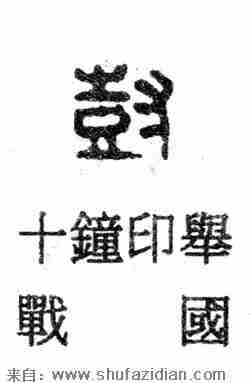 鼓
十鐘印舉
戰國
来自：www.shufazidian.com